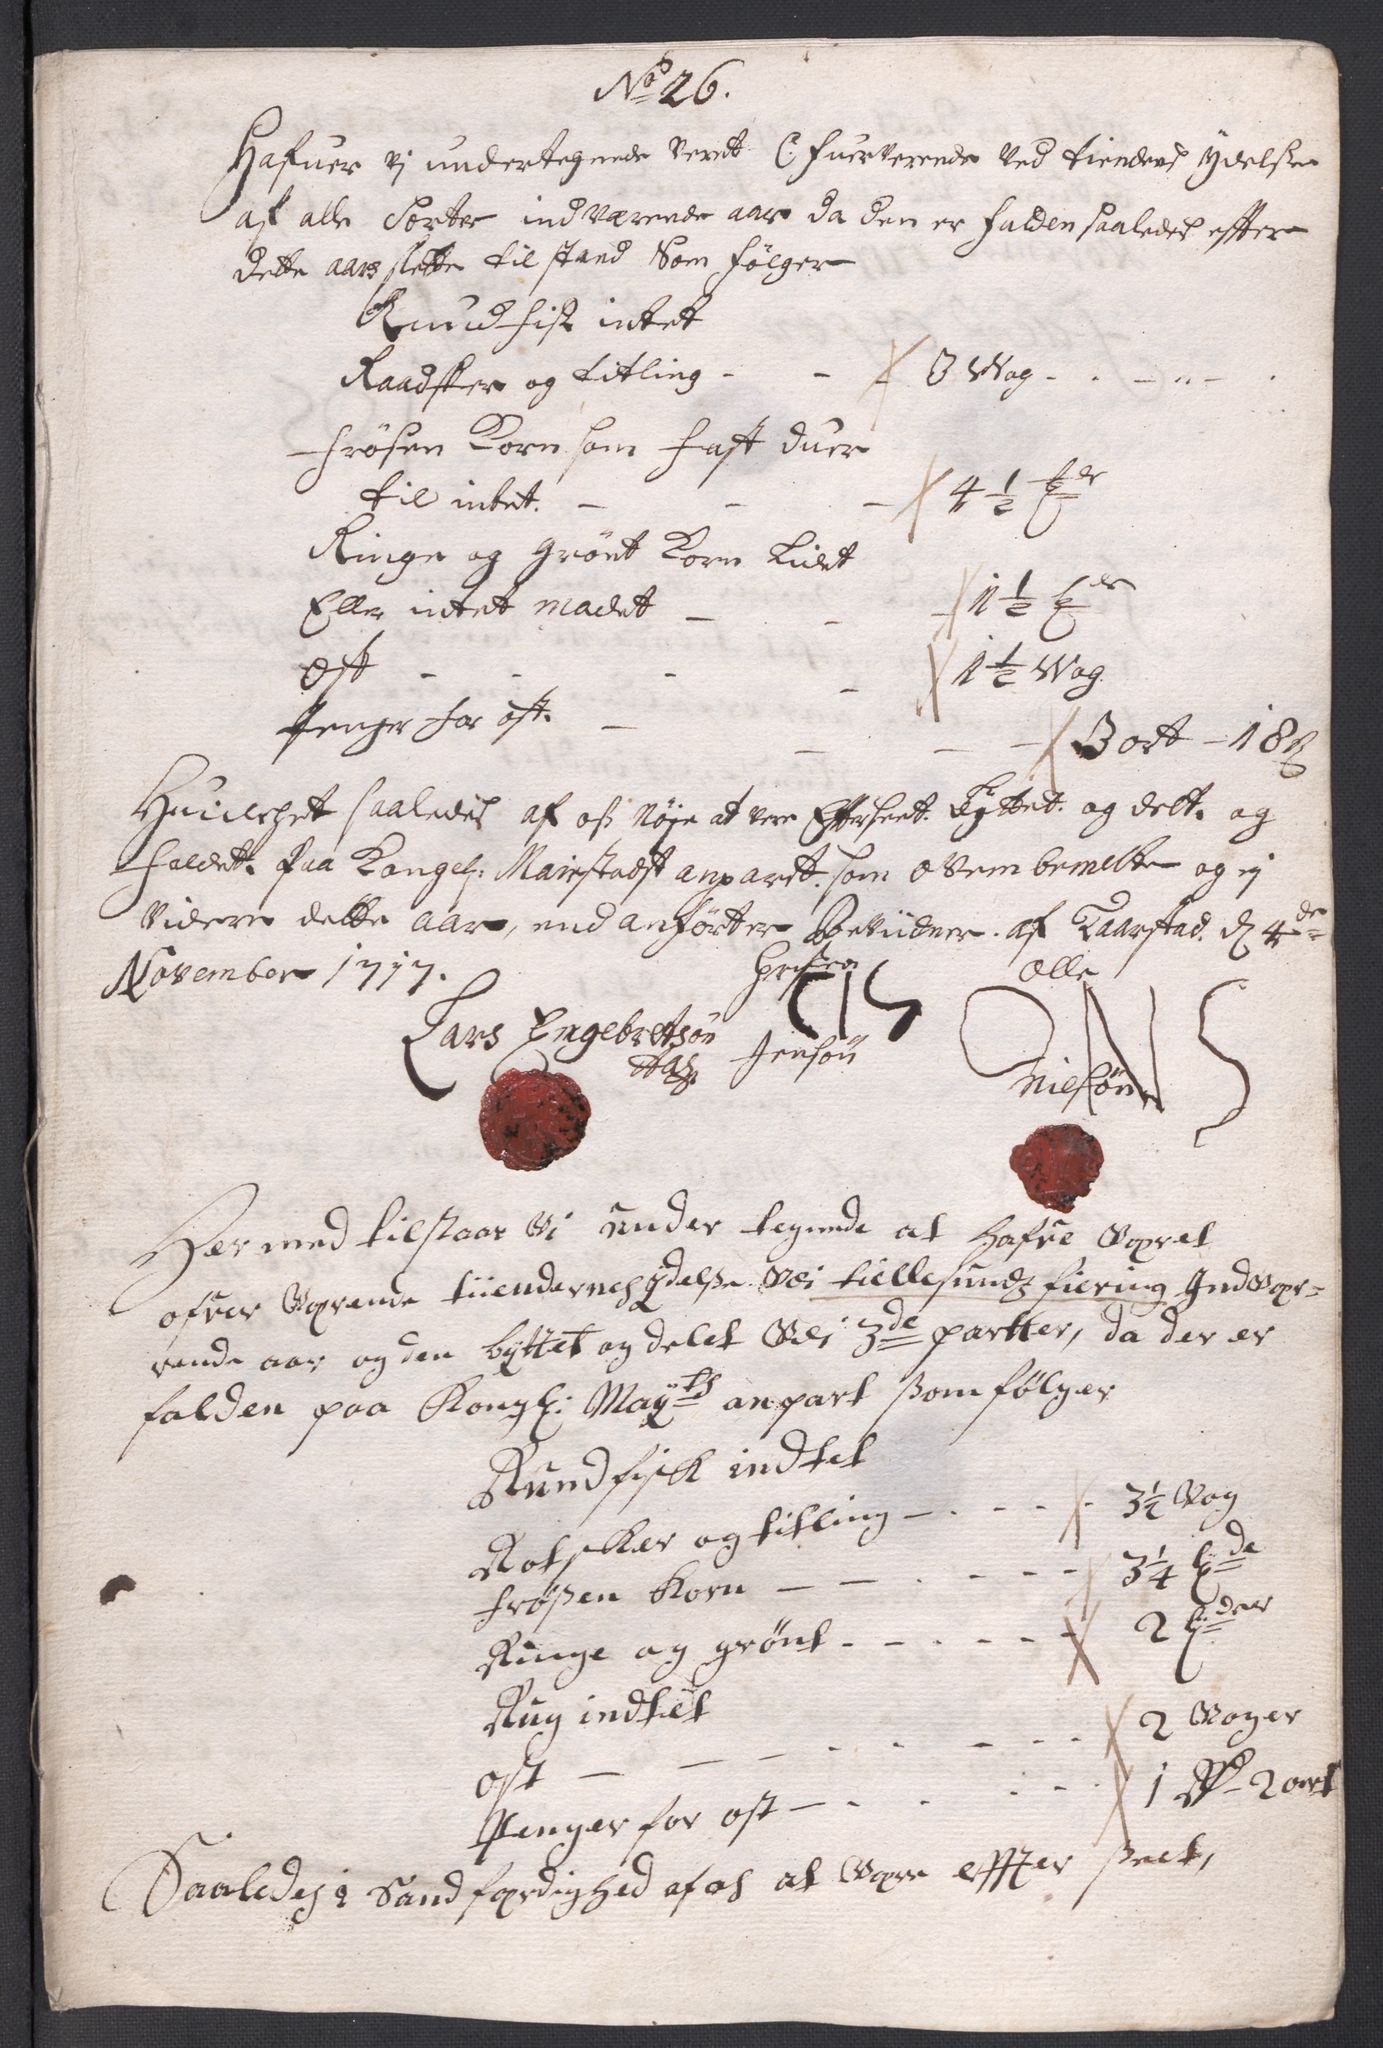 No 26.
Hafuer vj undertegnede veret Ofuerverende ved tiendens Ydelse
af alle Sorter indværende aar da den er falden saaledes effter
dette aars slette tilstand Som følger
Rundfisk intet
Raadskier og titling - - 3 Wog
frosen Korn som fast duer
til intet. - - - 4 1/2 tdr
Ringe og grønt Korn Lidet
Eller intet madet - - - 1 1/2 tdr
Ost - - - - 1 1/2 Wog
Penger for ost. - - - 3 ort - 18 ß
Huilchet saaledes af os nøje at vere Effterseet. byttet. og delt. og
faldet. paa Kongel: Maiestedst anpart. som ovem bemelte og ej
videre dette aar, end anførter Beviidner. af Taarstad. d 4de
November 1717.
Lars Engebretsøn
Jensøn
CIS
Olle
ONS
Nielsøn
Her med tilstaar Vi under tegnede at hafue Været
ofuer Værende tiendernes Ydelße Vdi tiellesundz fiering Indvær=
rende aar og den byttet og delet Vdi 3de partter, da der er
falden paa Kongl: Mayts anpart ßom følger
Rundfisk indtet
Rotskier og titling - - - - 3 1/2 Vog
froßen Korn - - - - - 3 1/4 tde
Ringe og grønt - - - - - 2 tder
Rug indtet
ost - - - - - - - 2 Voger
Penger for ost - - - - - 1 Rd - 2 ort
Saaledes i Sandfærdighed af os at Være effter ßeet,